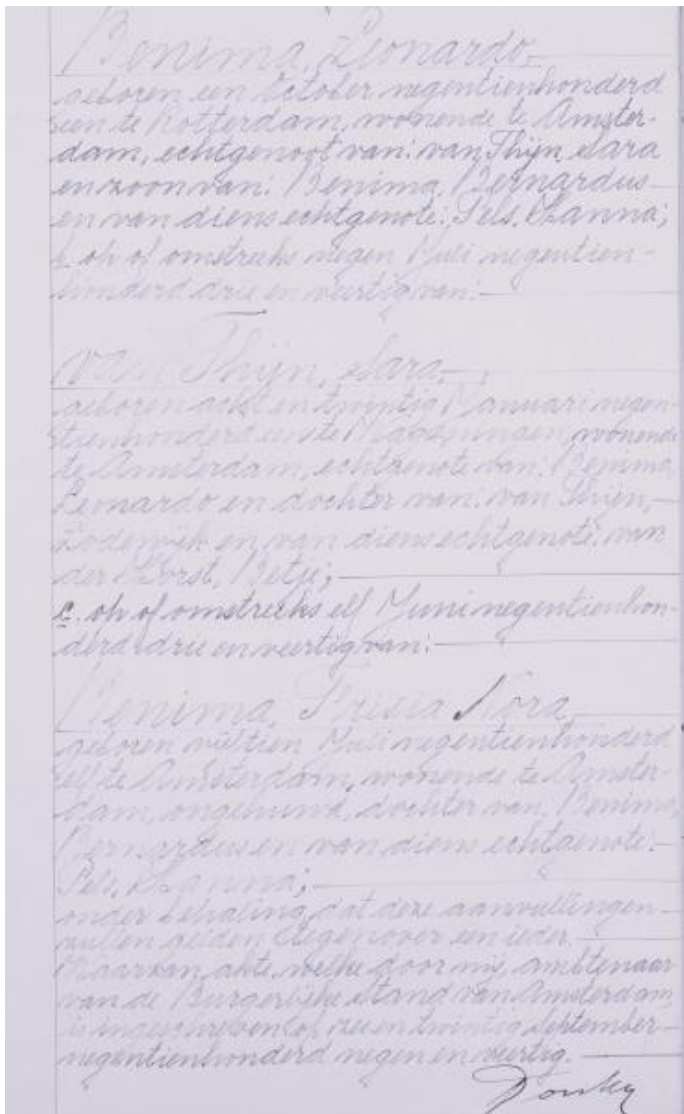 Benima, Leonardo,
geboren een October negentienhonderd
een te Rotterdam, wonende te Amster-
dam, echtgenoot van: van Thijn, Sara
en zoon van: Benima, Bernardus
en van diens echtgenote: Pels, Channa;
b. op of omstreeks negen Juli negentien-
honderd drie en veertig van:
van Thijn, Sara,
geboren acht en twintig Januari negen-
tienhonderd een te Wageningen, wonende
te Amsterdam, echtgenote van: Benima,
Leonardo en dochter van: van Thijn,
Lodewijk en van diens echtgenote: van
der Horst, Betje;
c. op of omstreeks elf Juni negentienhon-
derd drie en veertig van:
Benima, Frisia Nora,
geboren vijftien Juli negentienhonderd
elf te Amsterdam, wonende te Amster-
dam, ongehuwd, dochter van: Benima,
Bernardus en van diens echtgenote:
Pels, Channa;
onder bepaling, dat deze aanvullingen
zullen gelden tegenover een ieder.
Waarvan akte, welke door mij, ambtenaar
van de Burgerlijke Stand van Amsterdam
is ingeschreven op zes en twintig September
negentienhonderd negen en veertig.